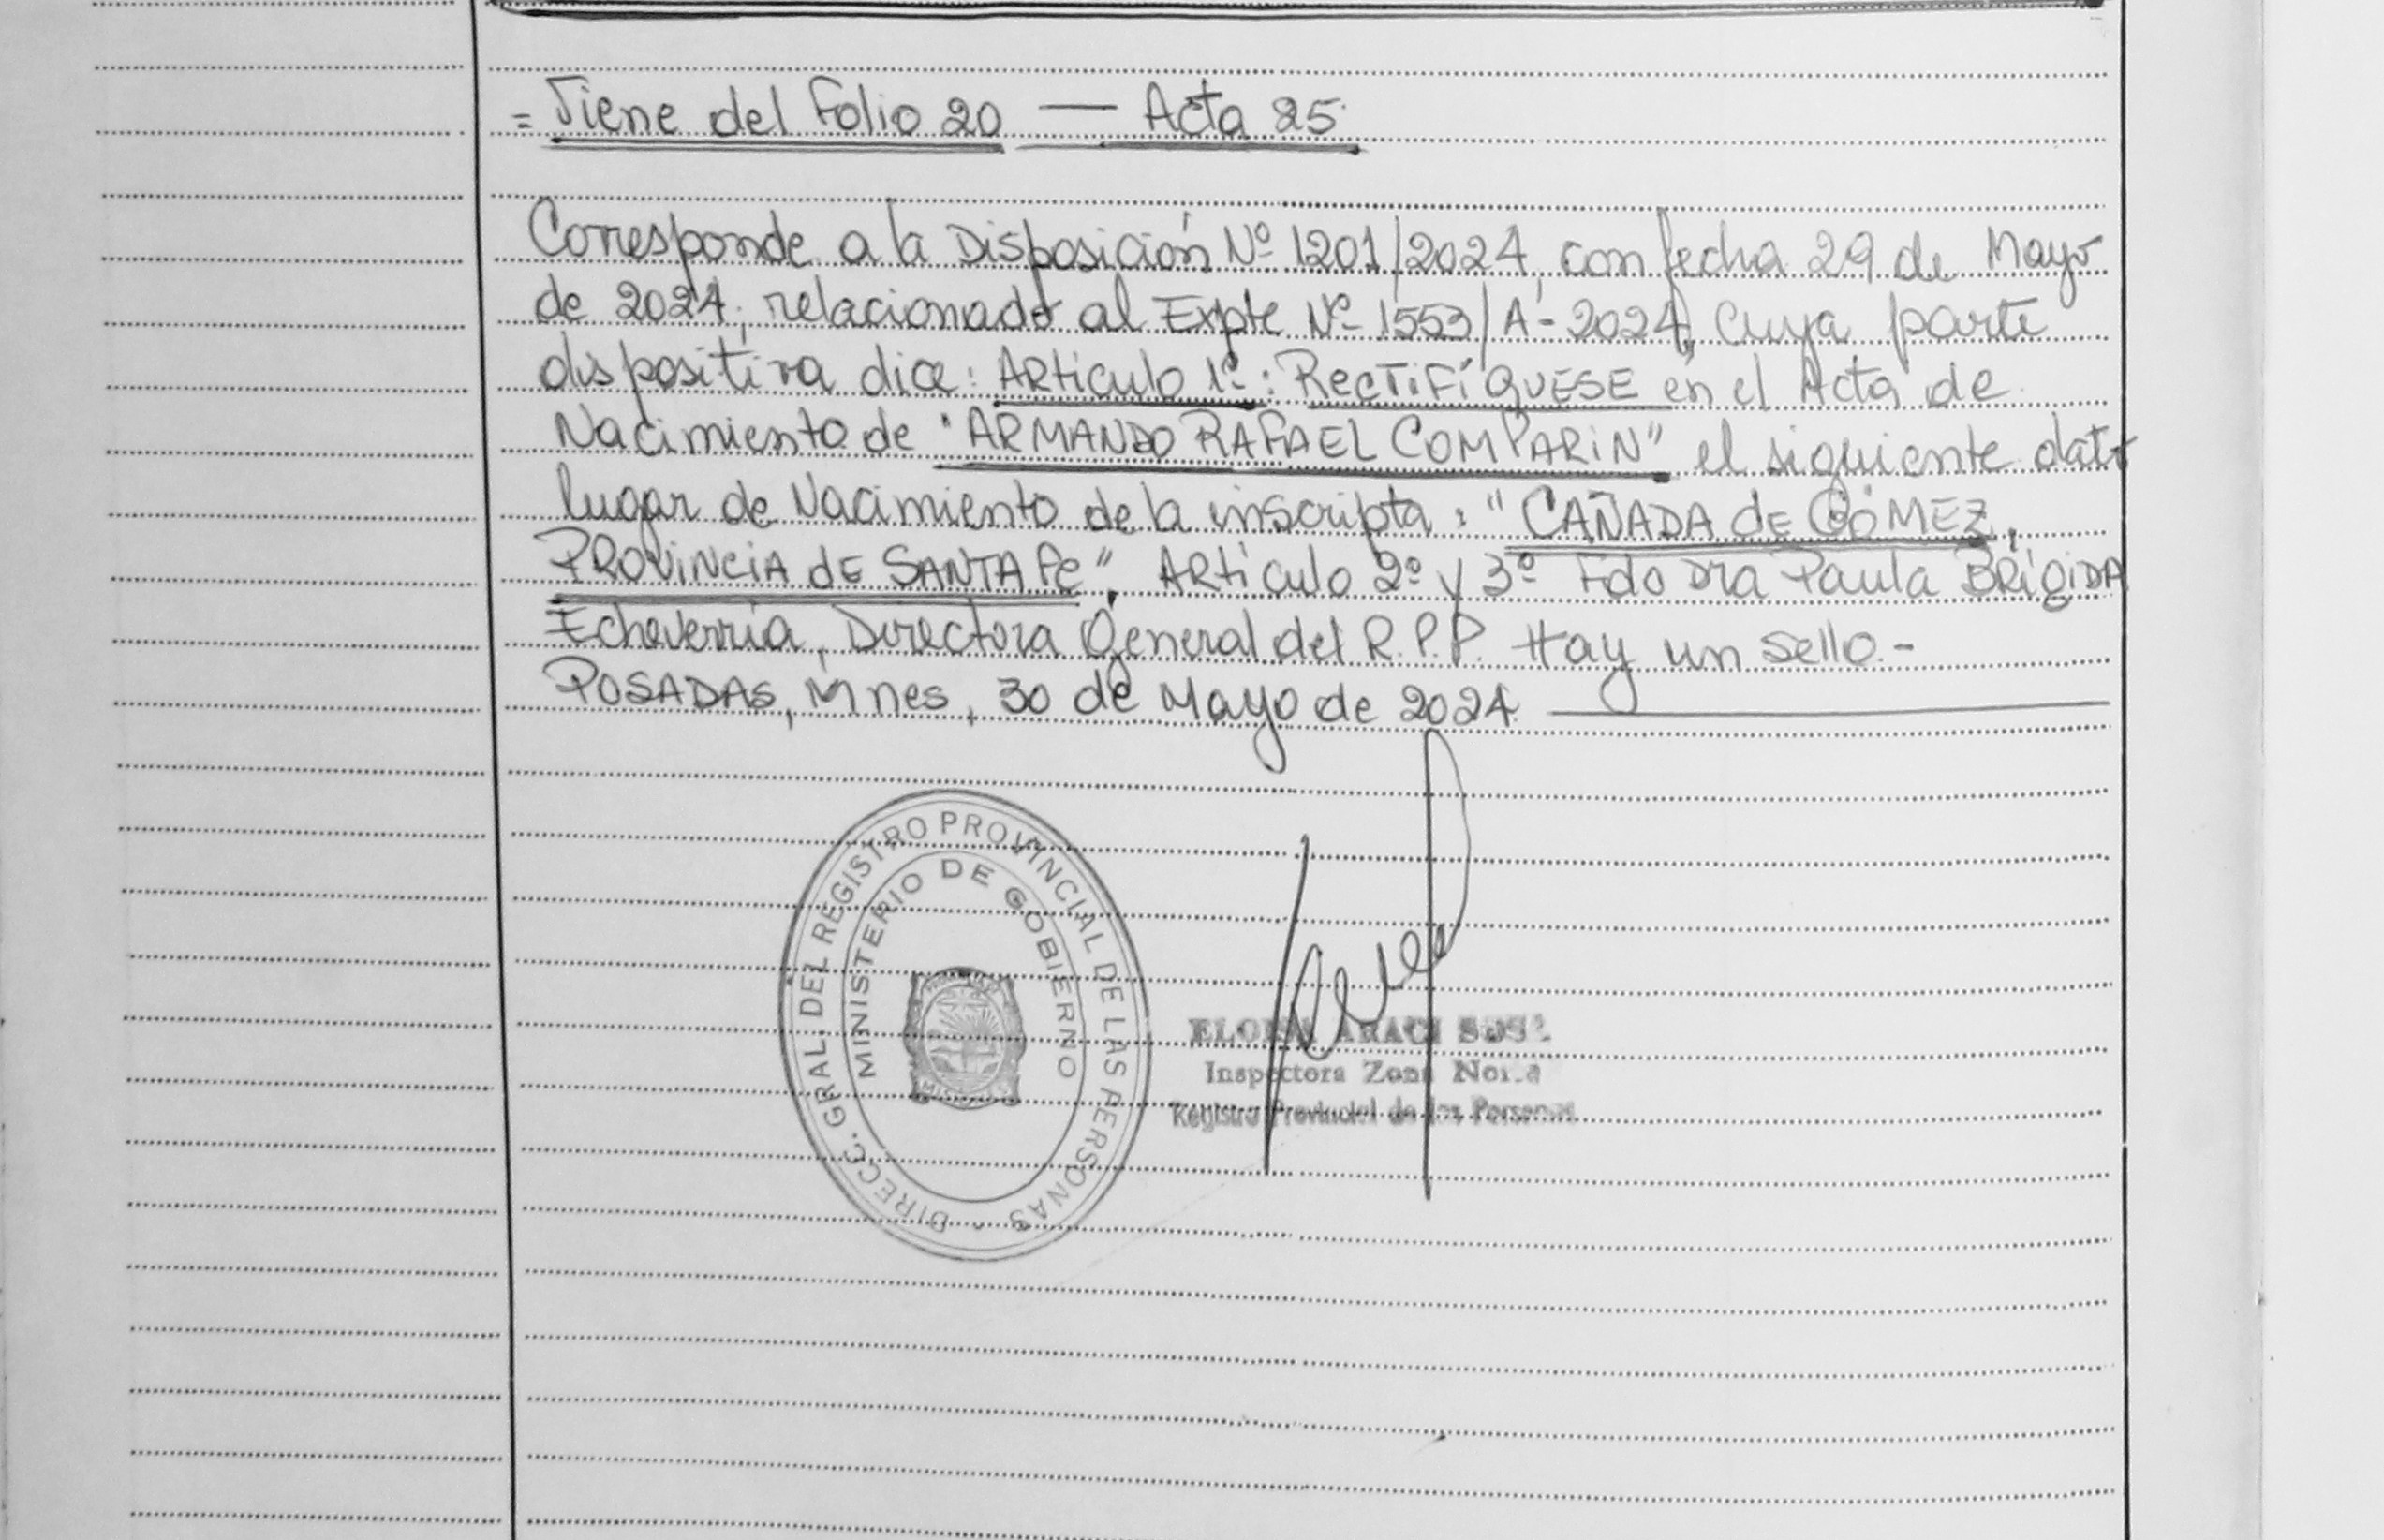 = Viene del Folio 20 — Acta 25.
Corresponde a la Disposición Nº 1201/2024, con fecha 29 de Mayo
de 2024, relacionado al Expte Nº 1553/A-2024, cuya parte
dispositiva dice: Artículo 1º: RECTIFÍQUESE en el Acta de
Nacimiento de "ARMANDO RAFAEL COMPARIN" el siguiente dato
lugar de Nacimiento de la inscripta: "CAÑADA de GÓMEZ,
PROVINCIA de SANTA Fe", Artículo 2º y 3º Fdo Dra Paula BRÍGIDA
Echeverría, Directora General del R.P.P. Hay un sello.-
POSADAS, Mnes, 30 de Mayo de 2024.
DIRECC. GRAL. DEL REGISTRO PROVINCIAL DE LAS PERSONAS -
MINISTERIO DE GOBIERNO
MISIONES
ELOISA ARACI
Inspectora Zona Norte
Registro Provincial de las Personas